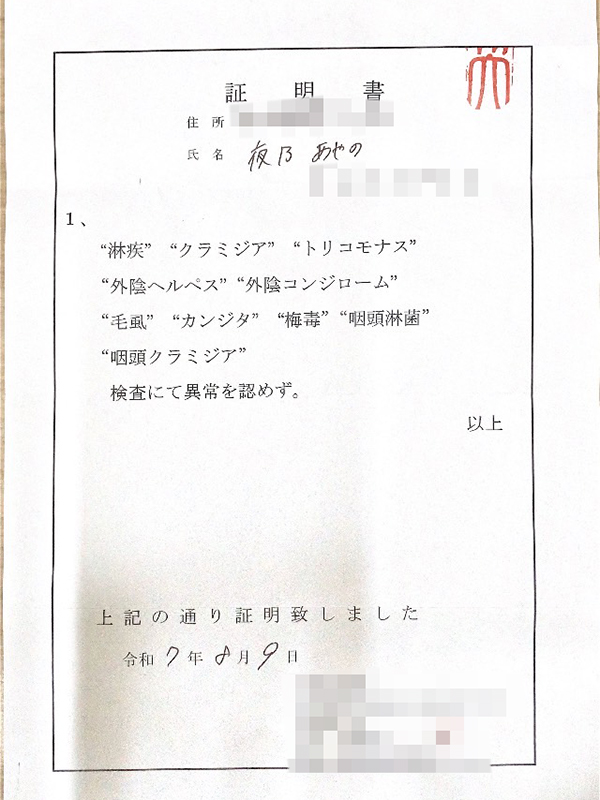 証明書
住所
氏名 夜乃 あやの
1、
“淋疾” “クラミジア” “トリコモナス”
“外陰ヘルペス” “外陰コンジローム”
“毛虱” “カンジタ” “梅毒” “咽頭淋菌”
“咽頭クラミジア”
検査にて異常を認めず。
以上
上記の通り証明致しました
令和 7 年 8 月 9 日